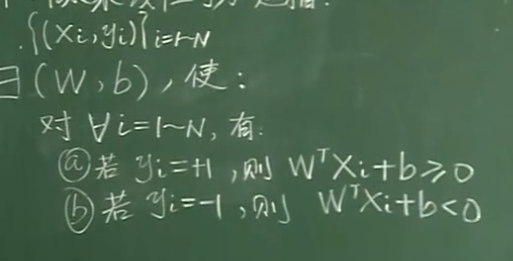 .{(Xi,yi)}i=1~N
∃(W,b),使:
对∀i=1~N,有:
ⓐ若 yi=+1,则 WᵀXi+b≥0
ⓑ若 yi=-1,则 WᵀXi+b<0